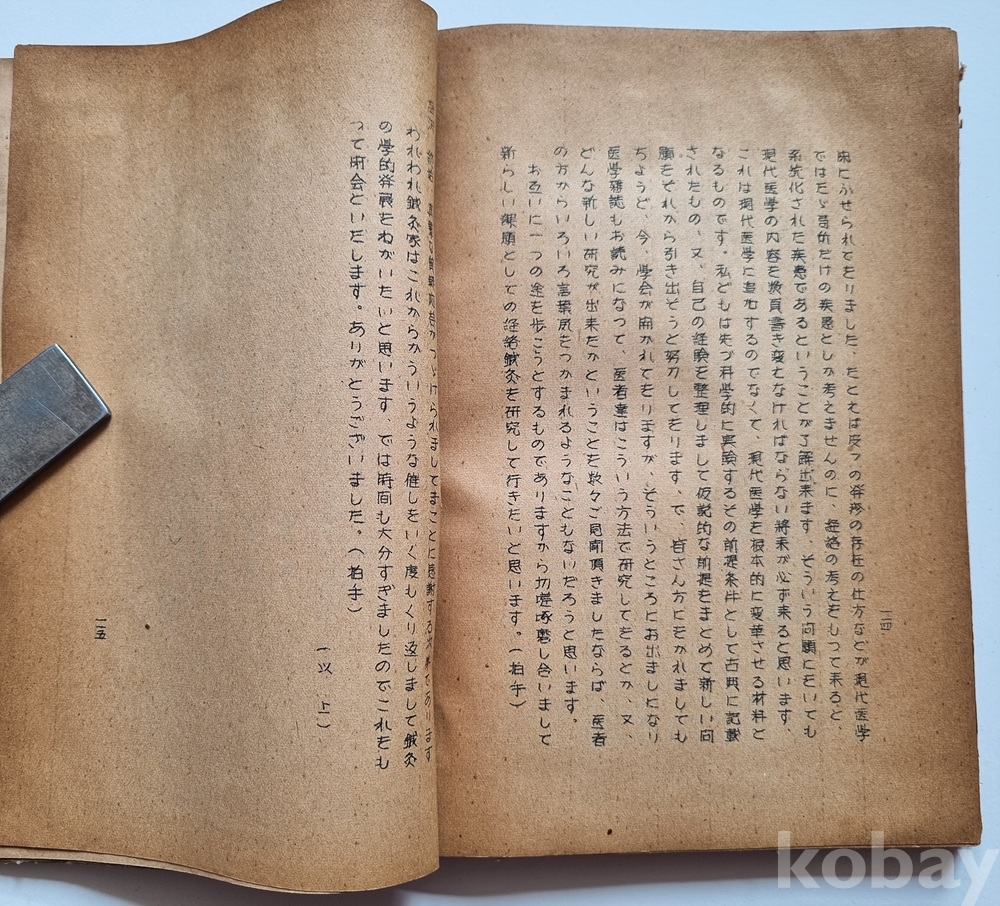 床にふせられてをりました、たとえば皮フの発疹の存在の仕方などが現代医学
ではたゞ局所だけの疾患としか考えませんのに、経絡の考えをもつて来ると、
系統化された疾患であるということが了解出来ます、そういう問題にをいても
現代医学の内容を数頁書き変えなければならない将来が必ず来ると思います、
これは現代医学に追むするのでなくて、現代医学を根本的に変革させる材料と
なるものです。私どもは先づ科学的に実験するその前提条件として古典に記載
されたもの、又、自己の経験を整理しまして仮説的な前提をまとめて新しい問
題をそれから引き出そうと努力してをります、で、皆さん方にをかれましても
ちようど、今、学会が開かれてをりますが、そういうところにお出ましになり
医学雑誌もお読みになつて、医者達はこういう方法で研究してをるとか、又、
どんな新しい研究が出来たかということを数々ご見聞頂きましたならば、医者
の方からいろいろ言葉尻をつかまれるようなこともないだろうと思います。
お互いに一つの途を歩こうとするものでありますから切磋琢磨し合いまして
新らしい課題としての経絡鍼灸を研究して行きたいと思います。(拍手)
一四
つゞけられましてまことに感謝する次第であります
われわれ鍼灸家はこれからかういうような催しをいく度もくり返しまして鍼灸
の学的発展をねがいたいと思います、では時間も大分すぎましたのでこれをも
つて閉会といたします。ありがとうございました。(拍手)
(以 上)
一五
kobay